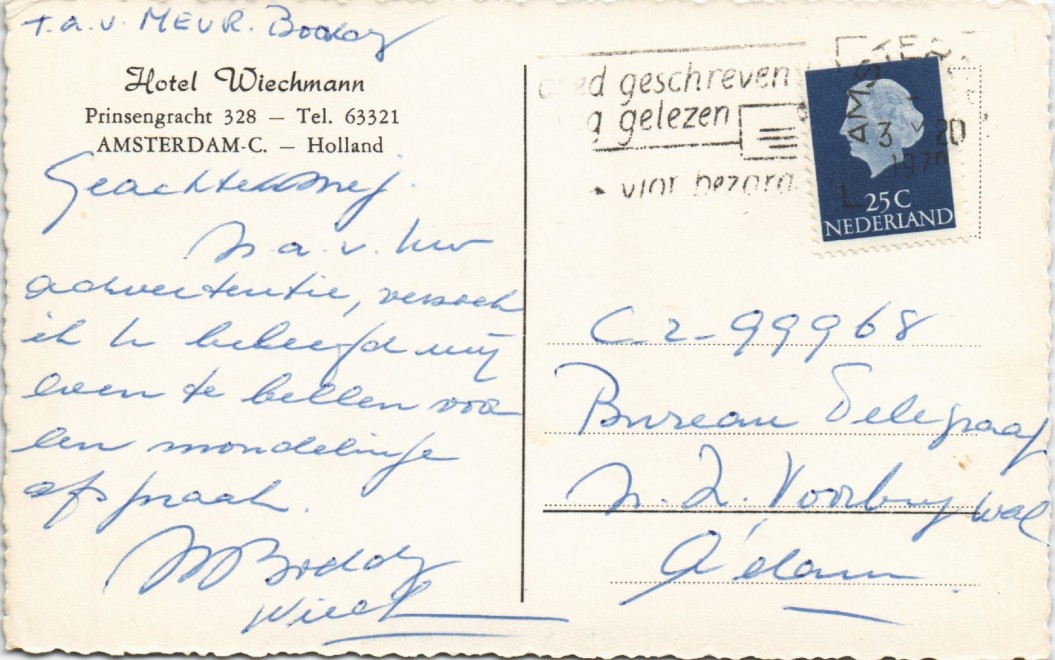 t.a.v. MEVR. Boddy
Hotel Wiechmann
Prinsengracht 328 — Tel. 63321
AMSTERDAM-C. — Holland
Geachte Mej.
N a. v. Uw
advertentie, verzoek
ik U beleefd mij
even te bellen voor
een mondelinge
afspraak.
Boddy
geschreven
gelezen
AMS
3 V 20
1970
25 C
NEDERLAND
C-2-99968
Bureau Telegraaf
N. Z. Voorburgwal
A'dam